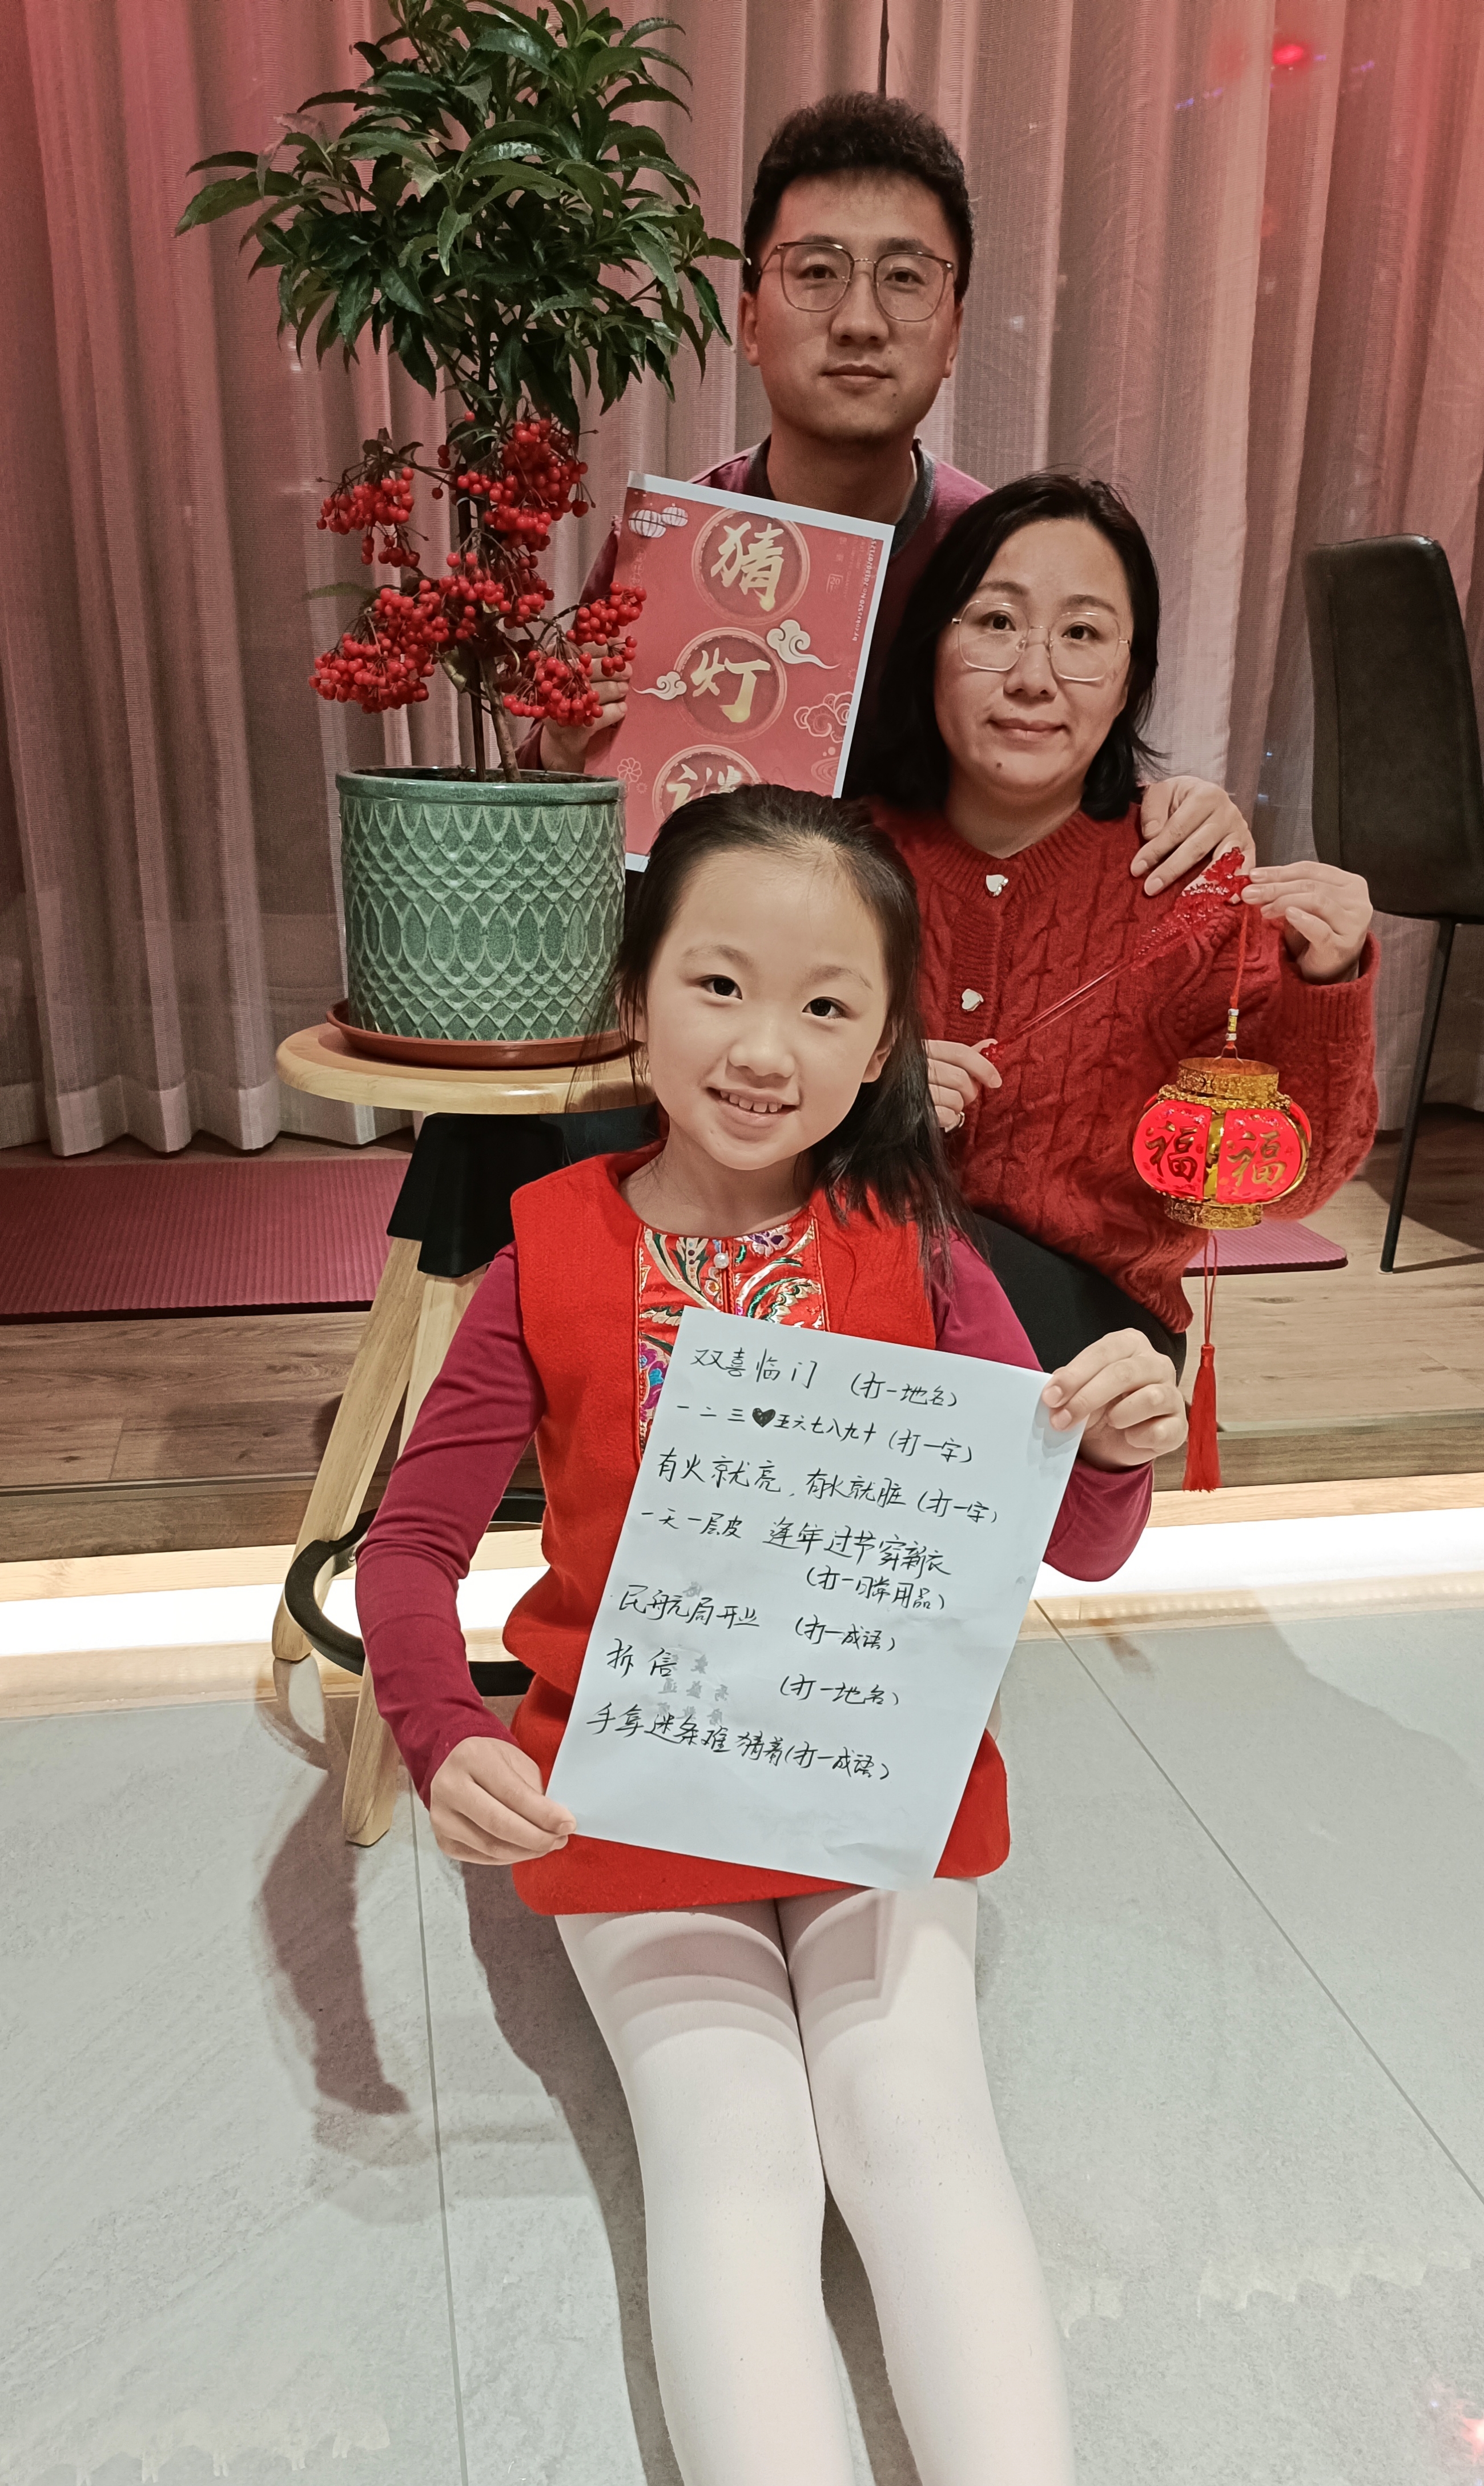 猜
灯
谜
福 福
双喜临门 (打一地名)
一二三♥五六七八九十 (打一字)
有火就亮，有水就脏 (打一字)
一天一层皮 逢年过节穿新衣
(打一日常用品)
民航局开业 (打一成语)
拆信 (打一地名)
手拿迷条难猜着 (打一成语)